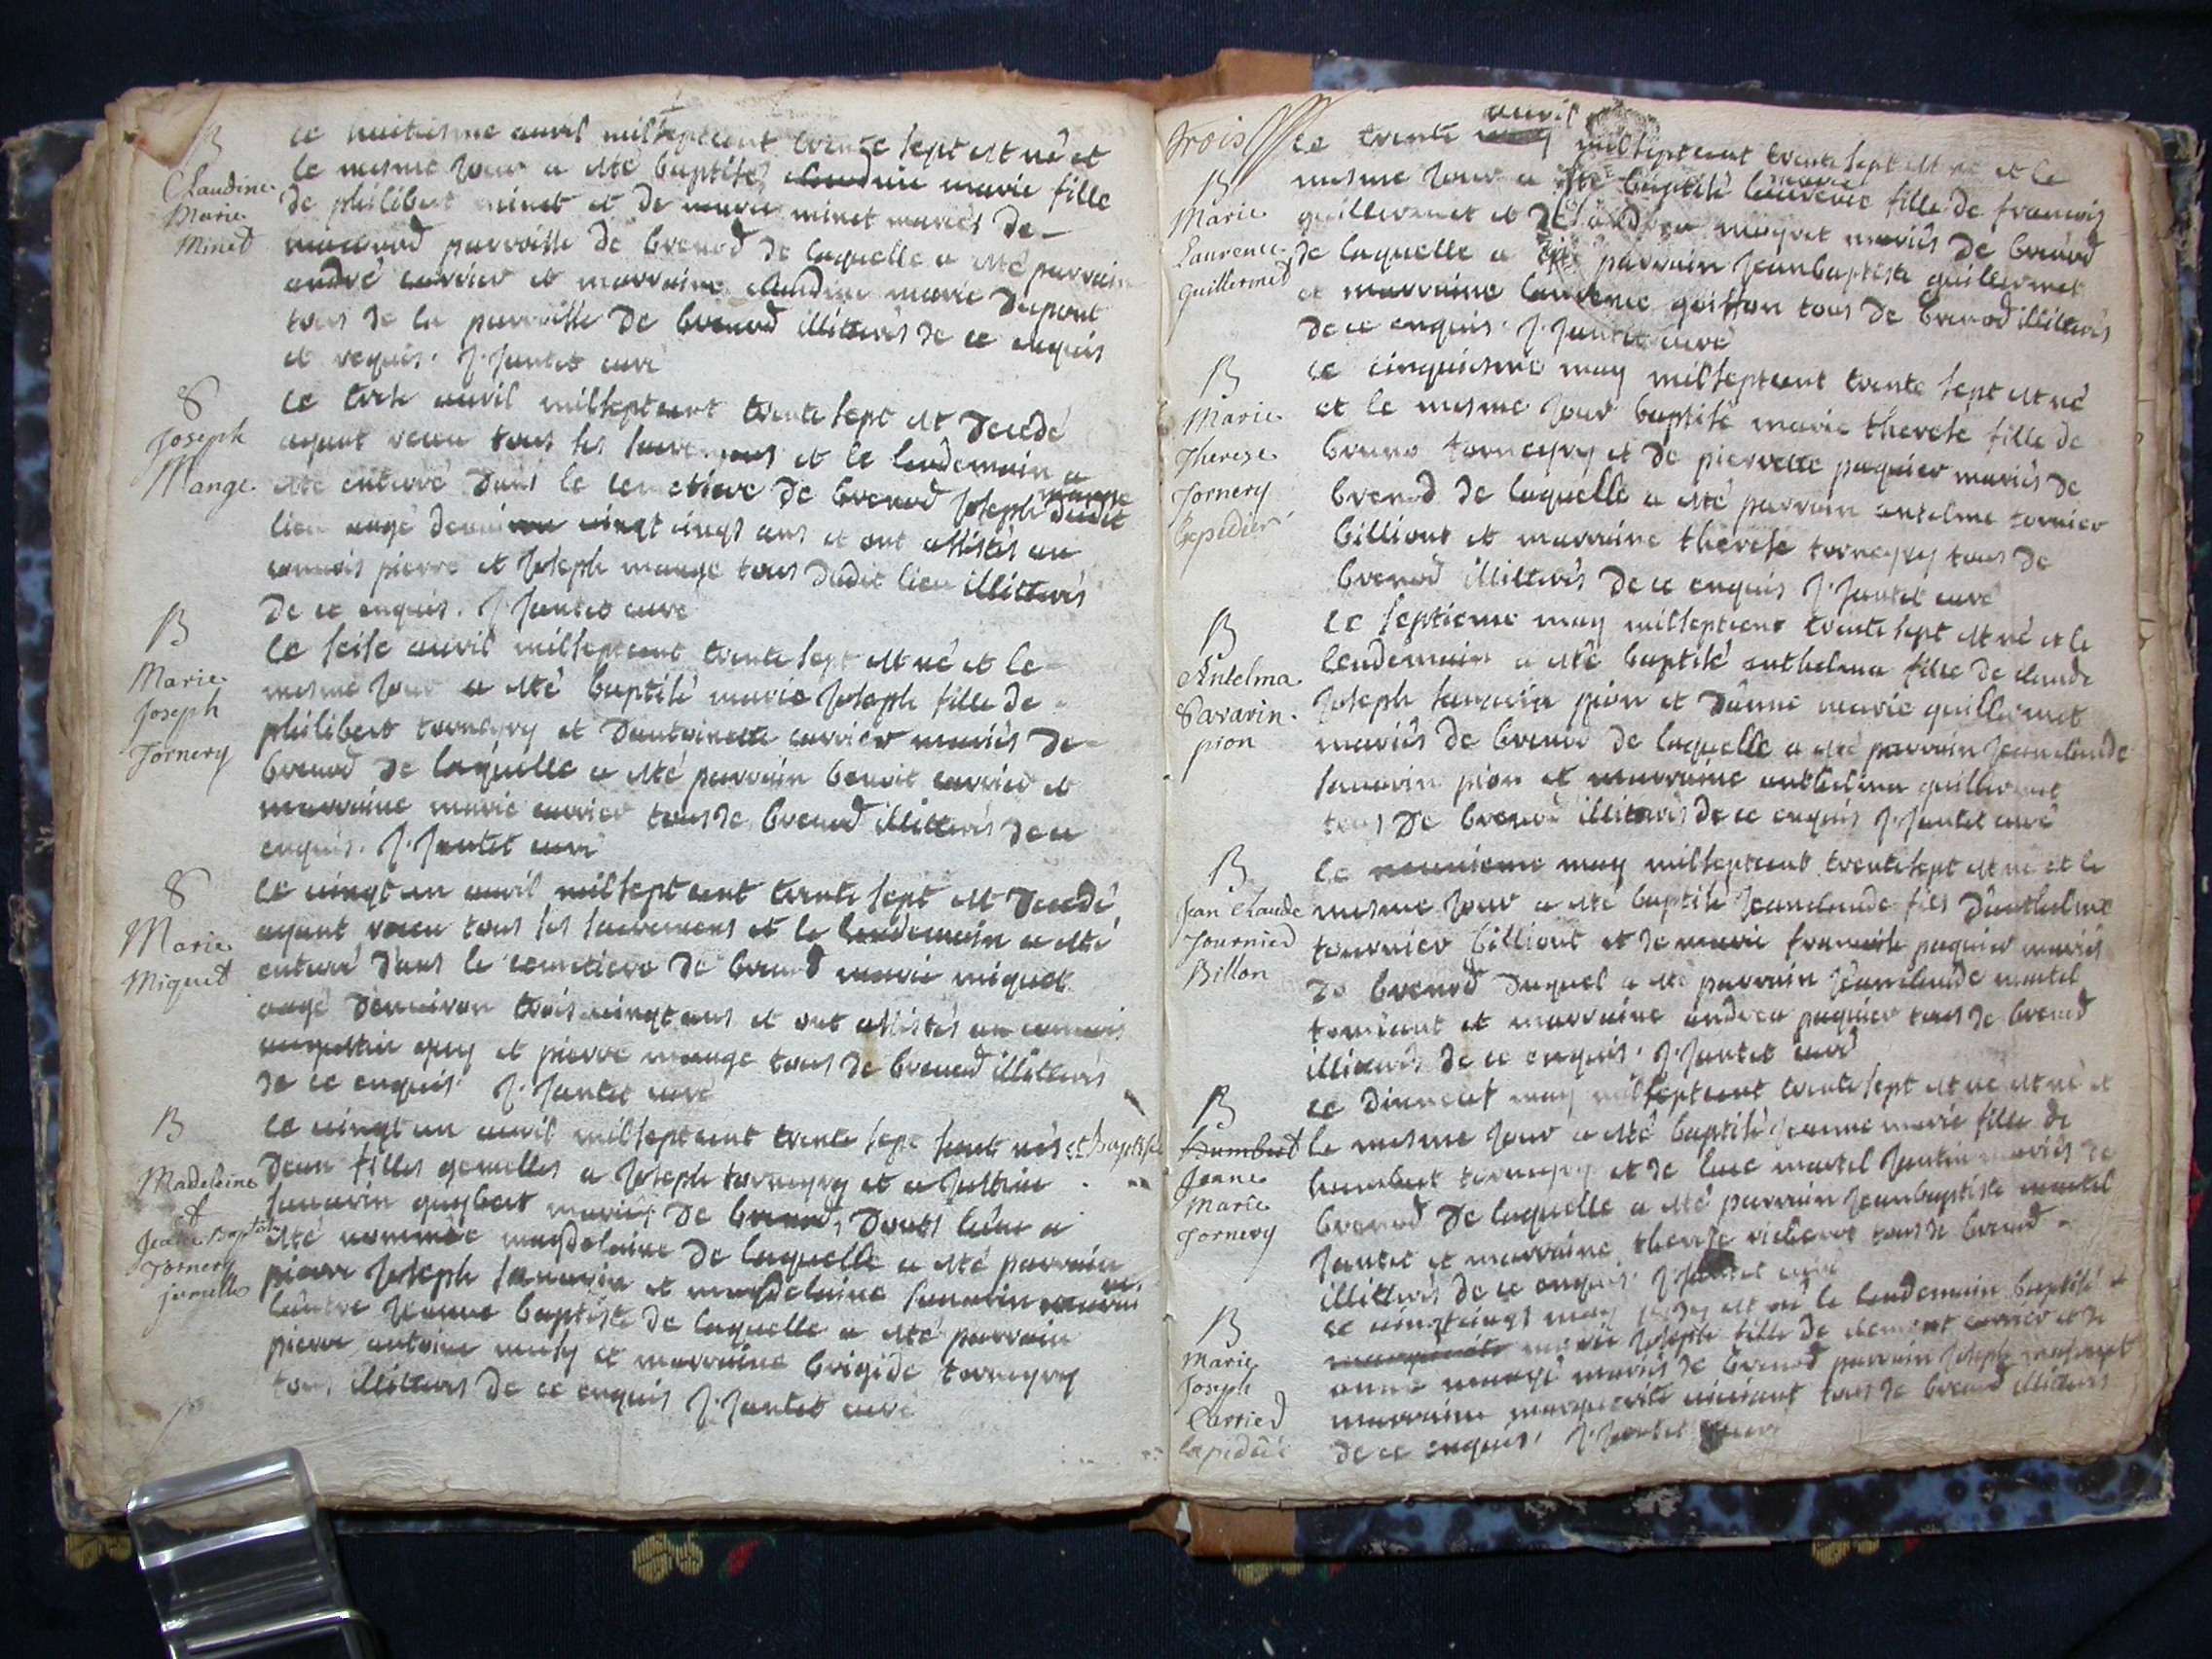 B
Claudine
Marie
Minet
ce huitiesme auril milseptcent trente sept est né et
le mesme jour a esté baptisés claudine marie fille
de philibert minet et de marie minet mariés de
macconod parroisse de brenod de laquelle a esté parrain
andré carrier et marraine claudine marie dupont
tous de la parroisse de brenod illitterés de ce enquis
et requis. J. Jantet curé
S
Joseph
Mange
Le treise auril milseptcent trente sept est decedé
ayant receu tous les sacremens et le lendemain a
esté enterré dans le cemetiere de brenod Joseph mange dudit
lieu aagé denuiron vingt cinqs ans et ont assistés au
conuois pierre et Joseph mange tous dudit lieu illitterés
de ce enquis. J Jantet curé
B
Marie
Joseph
Tornery
Le seise auril milseptcent trente sept est né et le
mesme jour a esté baptisé marie Joseph fille de
philibert torneyry et dantoinette carrier mariés de
brenod de laquelle a esté parrain benoit carrier et
marraine marie carrier tous de brenod illitterés de ce
enquis. J. Jantet curé
S
Marie
Miquet
Le vingt un auril milseptcent trente sept est decedé
ayant receu tous les sacremens et le lendemain a esté
enterré dans le cemetiere de brenod marie miquet
aagé denuiron trois vingt ans et ont assistés au conuois
et pierre mange tous de brenod illitterés
de ce enquis J. Jantet curé
B
Madeleine
et
Jeane Baptiste
Tornery
jumelles
Le vingt un auril milseptcent trente sept sont nés et baptisés
deux filles gemelles a Joseph torneyry et a Justine
sauarin guybert mariés de brenod, donts lune a
esté nommée magdelaine de laquelle a esté parrain
pierre Joseph sauarin et magdelaine sauarin
lautre jeanne baptiste de laquelle a esté parrain
pierre antoine et marraine brigide torneyry
tous illitterés de ce enquis J. Jantet curé
trois
B
Marie
Laurence
Guillermet
Le trente auril milseptcent trente sept est né et le
mesme jour a esté baptisé marie laurence fille de francois
guillermet et dandrea miquet mariés de brenod
de laquelle a esté parrain Jeanbaptiste guillermet
et marraine laurence goiffon tous de brenod illitterés
de ce enquis. J. Jantet curé
B
Marie
Therese
Tornery
Lapidier
Le cinquiesme may milseptcent trente sept est né
et le mesme jour baptisé marie therese fille de
bruno torneyry et de pierrette paquier mariés de
brenod de laquelle a esté parrain antelme tornier
billiont et marraine therese torneyry tous de
brenod illitterés de ce enquis J. Jantet curé
B
Antelma
Savarin
pion
Le septieme may milseptcent trente sept est né et le
lendemain a esté baptisé anthelma fille de claude
Joseph sauarin pion et danne marie guillermet
mariés de brenod de laquelle a esté parrain Jeanclaude
sauarin pion et marraine anthelma guillermet
tous de brenod illitterés de ce enquis J. Jantet curé
B
Jean Claude
Tournier
Billon
Le neuuieme may milseptcent trente sept est né et le
mesme jour a esté baptisé Jeanclaude fils danthelme
tournier billiont et de marie francoise paquier mariés
de brenod duquel a esté parrain Jeanclaude martel
et marraine andrea paquier tous de brenod
illitterés de ce enquis. J. Jantet curé
B
Humbert
Jeane
Marie
Tornery
Le dixneuf may milseptcent trente sept est né est né et
le mesme jour a esté baptisé Jeanne marie fille de
humbert torneyry et de luce martel Jantin mariés de
brenod de laquelle a esté parrain Jeanbaptiste martel
Jantet et marraine therese tous de brenod
illitterés de ce enquis. J. Jantet curé
B
Marie
Joseph
Carrier
lapidier
Le vingtcinqs may est né le lendemain baptisé
marie Joseph fille de clement carrier et de
anne mange mariés de brenod parrain Joseph
marraine marguerite tous de brenod illitterés
de ce enquis. J. Jantet curé